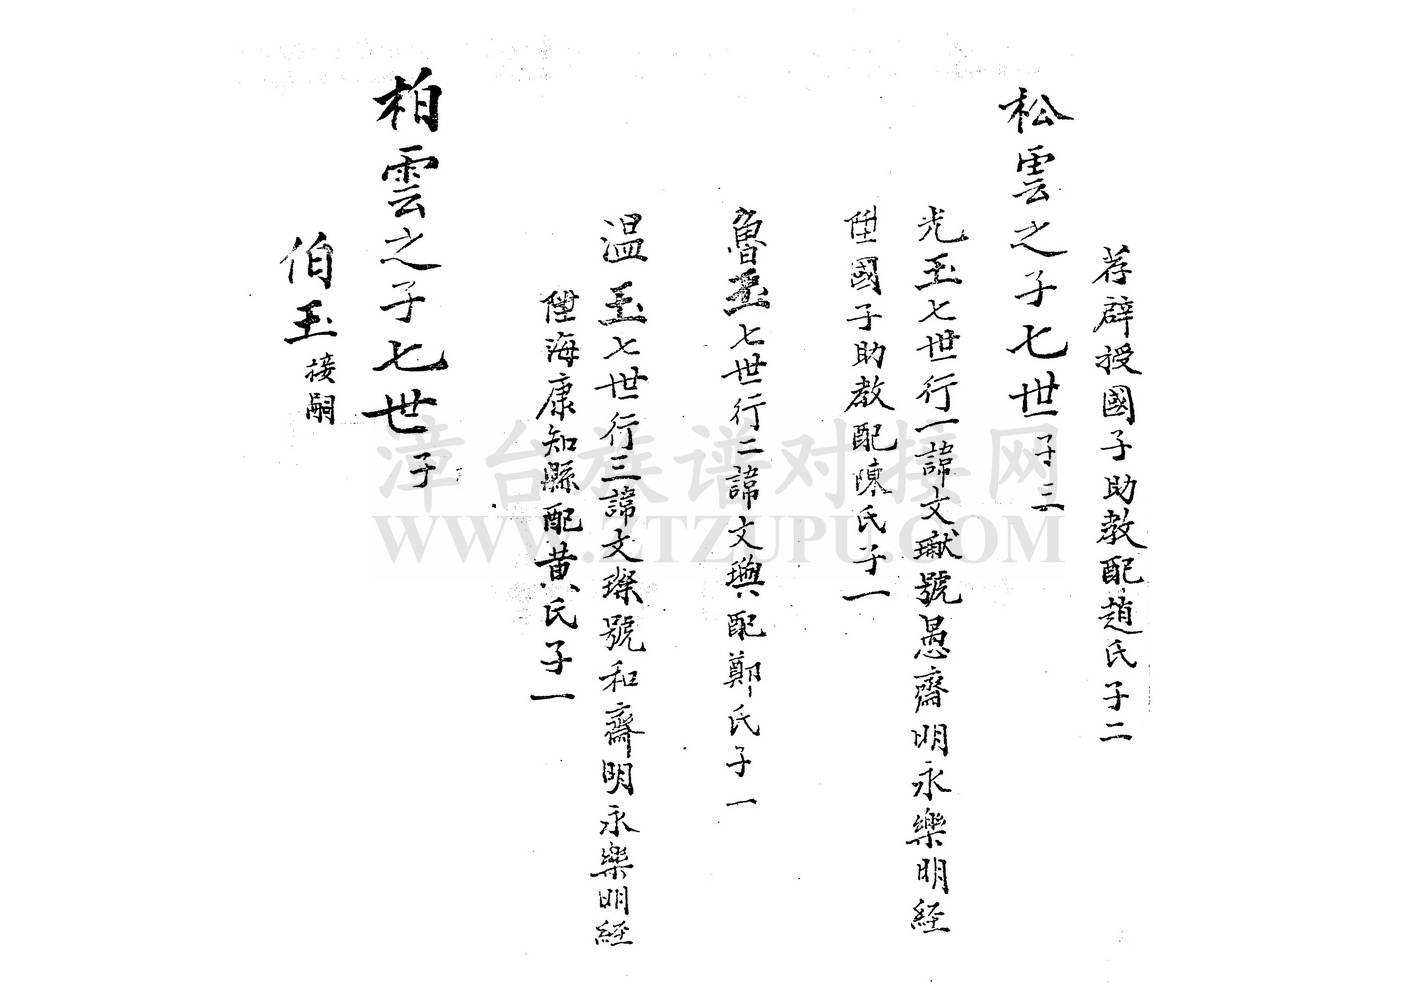 荐辟授國子助教配趙氏子二
松雲之子七世子三
光玉七世行一諱文獻號愚齋明永樂明經
陞國子助教配陳氏子一
魯玉七世行二諱文璵配鄭氏子一
温玉七世行三諱文璨號和齋明永樂明經
陞海康知縣配黄氏子一
柏雲之子七世子
伯玉接嗣
漳台族谱对接网
WWW.ZTZUPU.COM